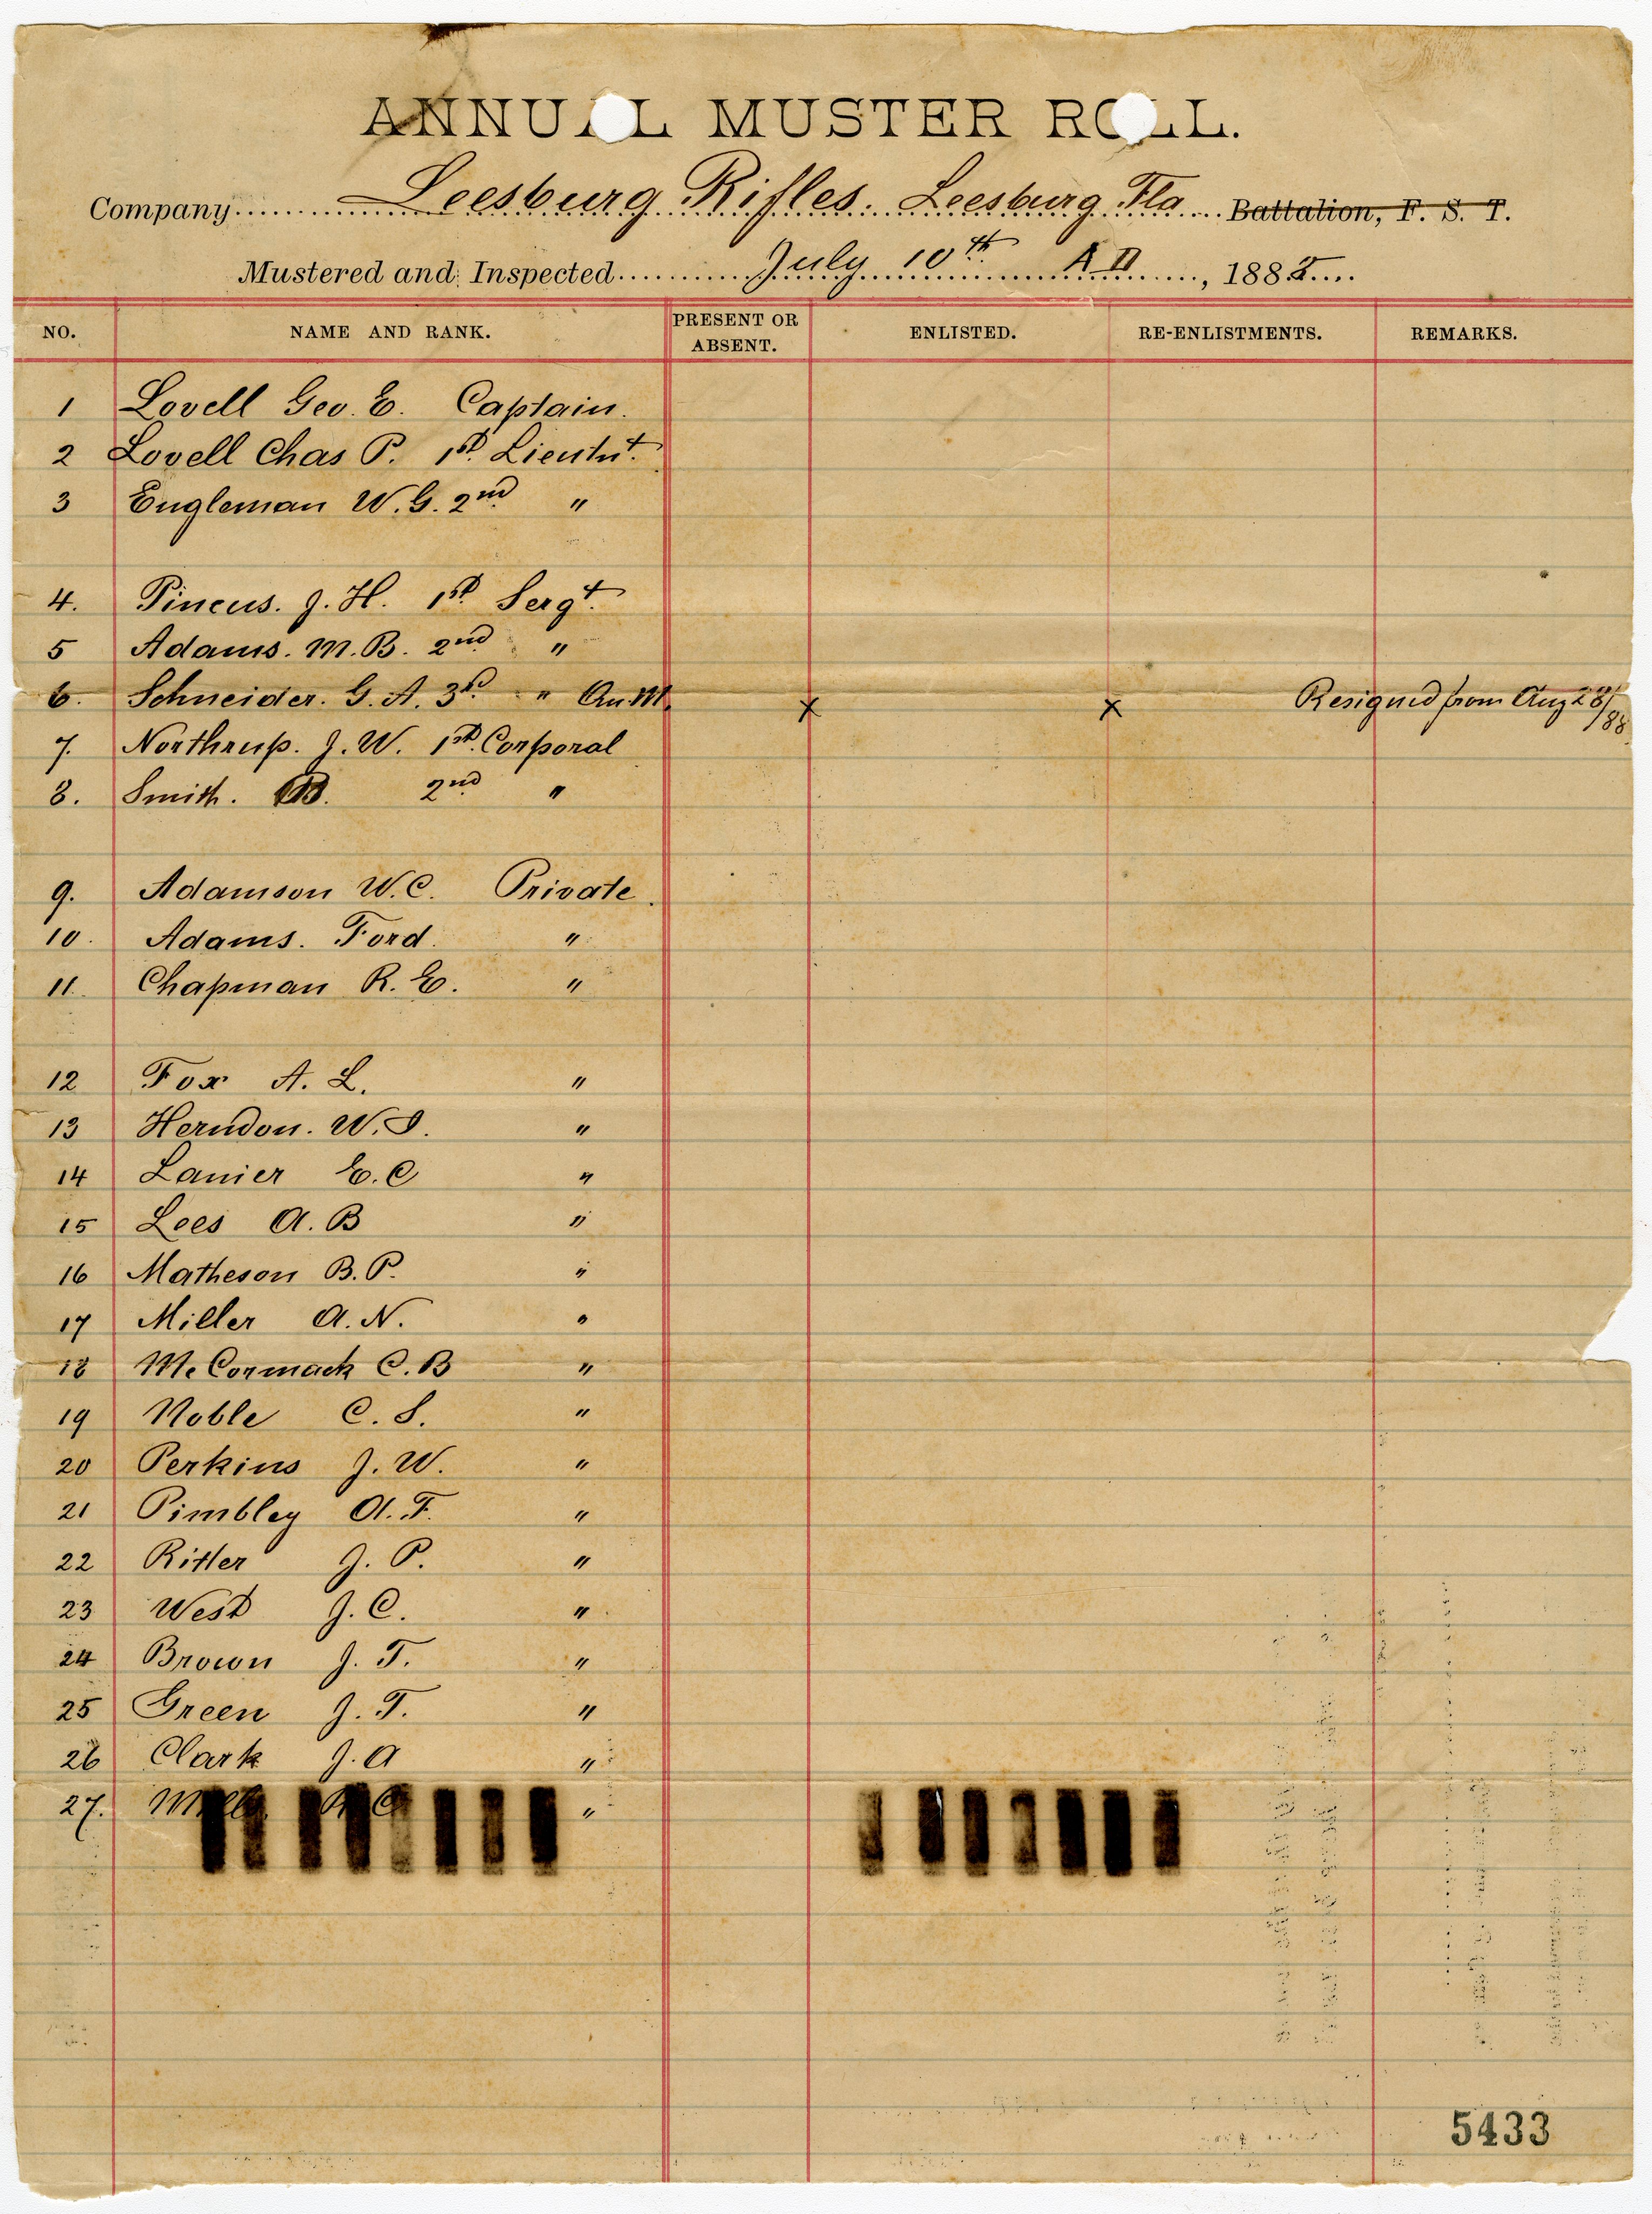 ANNUAL MUSTER ROLL.
Company Leesburg Rifles. Leesburg Fla Battalion, F. S. T.
Mustered and Inspected July 10th A D, 188
NO. NAME AND RANK. PRESENT OR ABSENT. ENLISTED. RE-ENLISTMENTS. REMARKS.
1 Lovell Geo. E. Captain.
2 Lovell Chas P. 1st Lieutnt.
3 Engleman W. G. 2nd "
4. Pincus. J. H. 1st Sergt.
5 Adams. M. B. 2nd "
6. Schneider. G. A. 3rd " Qu.M. x x Resigned from Aug 28/88
7. Northrup. J. W. 1st Corporal
8. Smith. B. 2nd "
9. Adamson W. C. Private.
10. Adams. Ford. "
11. Chapman R. E. "
12 Fox A. L. "
13 Herndon. W. I. "
14 Lanier E. C "
15 Lees A. B "
16 Matheson B. P. "
17 Miller A. N. "
18 McCormack C. B "
19 Noble C. S. "
20 Perkins J. W. "
21 Pimbley A. F. "
22 Ritter J. P. "
23 West J. C. "
24 Brown J. T. "
25 Green J. T. "
26 Clark J. A "
27. "
5433